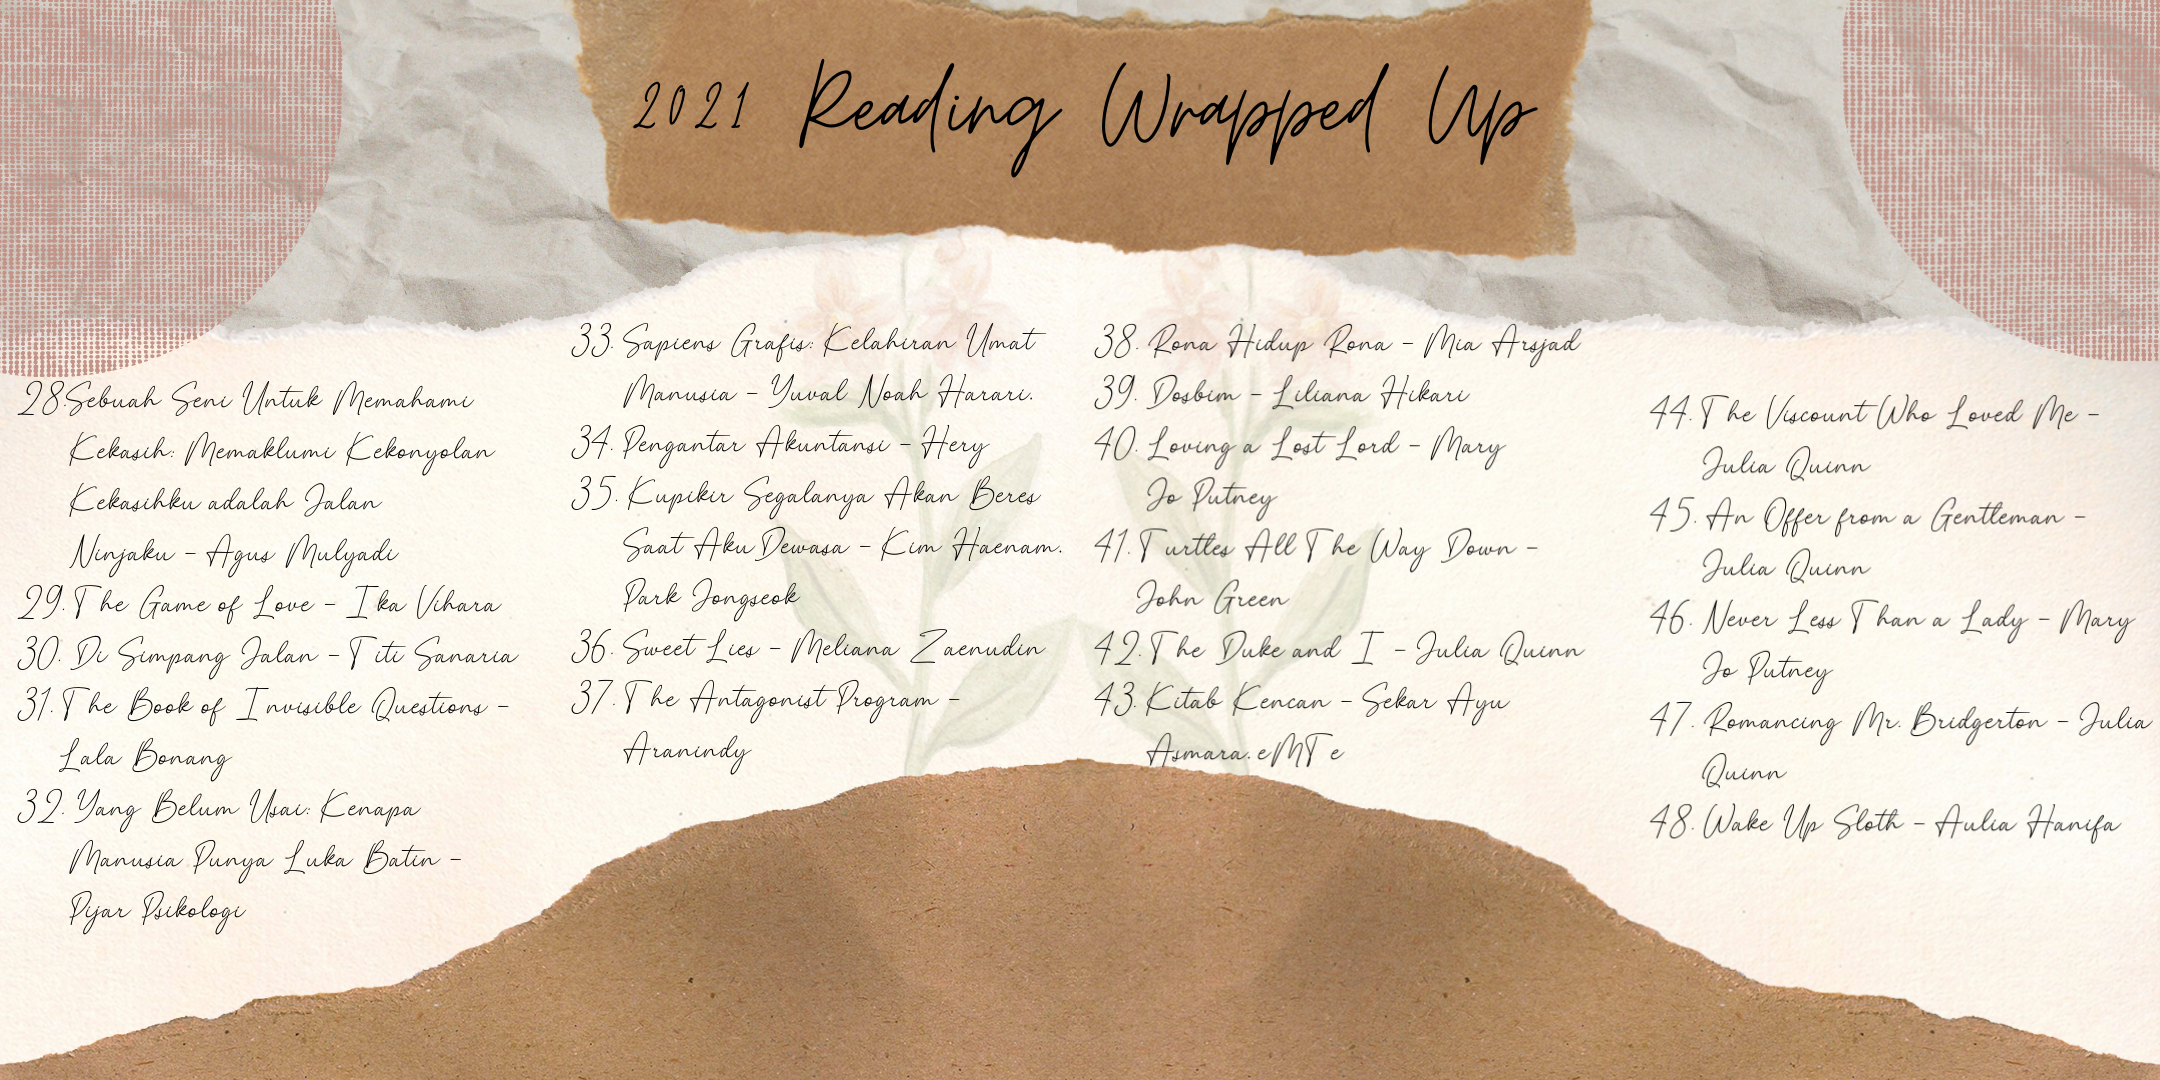 2021 Reading Wrapped Up
28.Sebuah Seni Untuk Memahami
Kekasih: Memaklumi Kekonyolan
Kekasihku adalah Jalan
Ninjaku - Agus Mulyadi
29.The Game of Love - Ika Vihara
30. Di Simpang Jalan - Titi Sanaria
31.The Book of Invisible Questions -
Lala Bonang
32. Yang Belum Usai: Kenapa
Manusia Punya Luka Batin -
Pijar Psikologi
33. Sapiens Grafis: Kelahiran Umat
Manusia - Yuval Noah Harari.
34. Pengantar Akuntansi - Hery
35. Kupikir Segalanya Akan Beres
Saat Aku Dewasa - Kim Haenam.
Park Jongseok
36. Sweet Lies - Meliana Zaenudin
37.The Antagonist Program -
Aranindy
38. Rona Hidup Rona - Mia Arsjad
39. Dosbim - Liliana Hikari
40. Loving a Lost Lord - Mary
Jo Putney
41.Turtles All The Way Down -
John Green
42.The Duke and I - Julia Quinn
43. Kitab Kencan - Sekar Ayu
Asmara. eMTe
44.The Viscount Who Loved Me -
Julia Quinn
45. An Offer from a Gentleman -
Julia Quinn
46. Never Less Than a Lady - Mary
Jo Putney
47. Romancing Mr. Bridgerton - Julia
Quinn
48. Wake Up Sloth - Aulia Hanifa